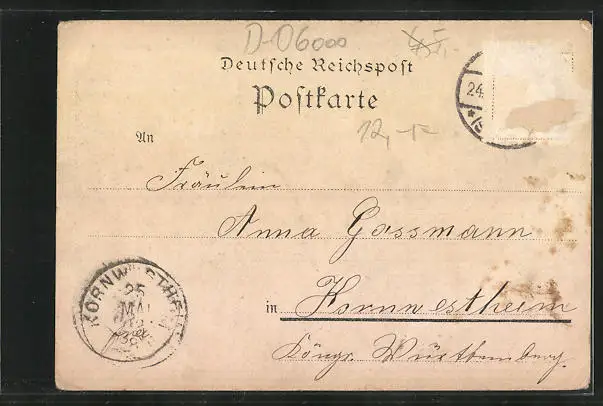 D-06000
Deutsche Reichspost
Postkarte
24.
12,-
An
Fräulein
Anna Gassmann
in Kornwestheim
Königr. Württemberg.
KORNWESTHEIM
25
MAI